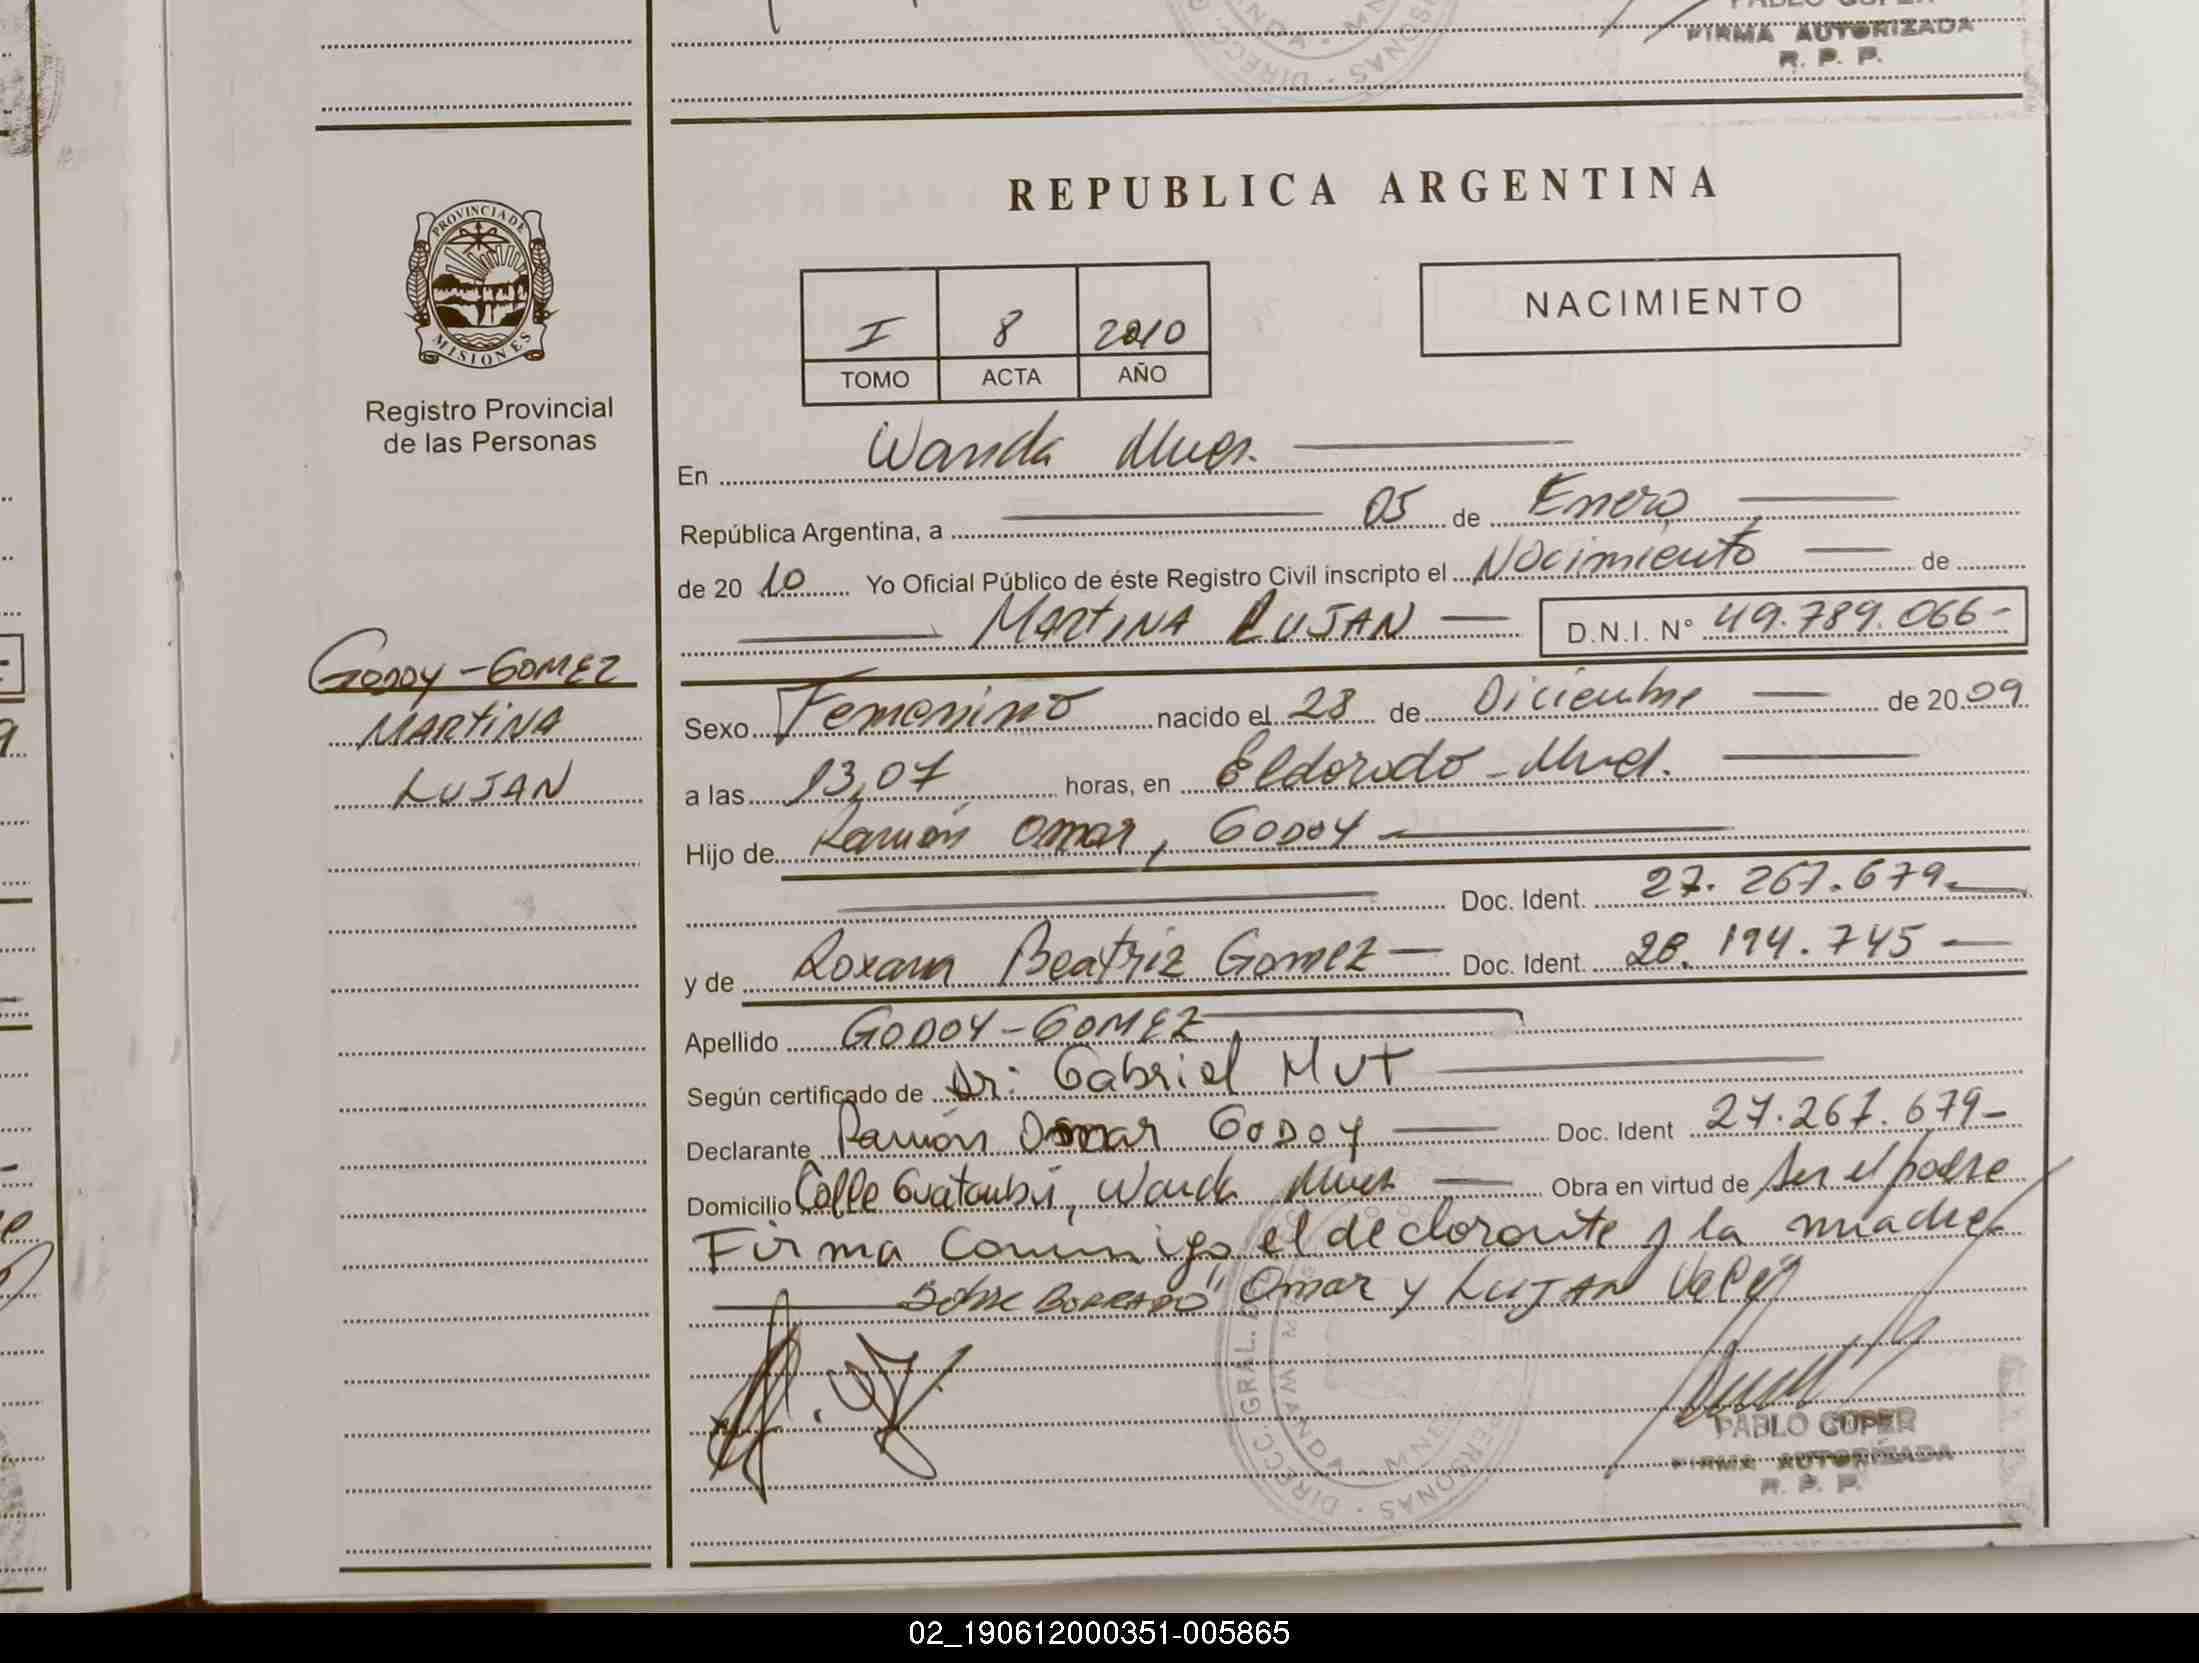 FIRMA AUTORIZADA
R. P. P.
REPUBLICA ARGENTINA
PROVINCIA DE
MISIONES
Registro Provincial
de las Personas
I 8 2010
TOMO ACTA AÑO
NACIMIENTO
En Wanda Mnes.
República Argentina, a 05 de Enero
de 20 10 Yo Oficial Público de éste Registro Civil inscripto el Nacimiento de
MARTINA LUJAN D.N.I. N° 49.789.066-
GODOY-GOMEZ
MARTINA
LUJAN
Sexo Femenino nacido el 28 de Diciembre de 2009
a las 13,07 horas, en Eldorado - Mnes.
Hijo de Ramón Omar, GODOY
Doc. Ident. 27.267.679-
y de Roxana Beatriz Gomez Doc. Ident. 28.194.745
Apellido GODOY-GOMEZ
Según certificado de Dr: Gabriel Mut
Declarante Ramón Omar GODOY Doc. Ident 27.267.679-
Domicilio Calle Guatambú, Wanda Mnes Obra en virtud de ser el padre
Firma Conmigo el declarante y la madre
Sobre BORRADO "Omar y LUJAN Vale"
DIRECC. GRAL. PERSONAS
WANDA - MNES
PABLO GUPER
FIRMA AUTORIZADA
R. P. P.
02_190612000351-005865